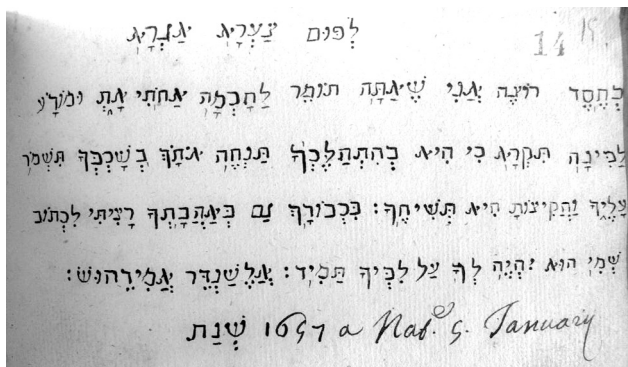 14
לְפוּם צַעְרָא אַגְרָא
בְּחֶסֶד רוֹצֶה אֲנִי שֶׁאַתָּה תוֹמֵר לַחָכְמָה אֲחֹתִי אָתְּ וּמוֹדָע
לַבִּינָה תִּקְרָא כִּי הִיא בְּהִתְהַלֶּכְךָ תַּנְחֶה אֹתָךְ בְּשָׁכְבְּךָ תִּשְׁמֹר
עָלֶיךָ וַהֲקִיצוֹתָ הִיא תְּשִׂיחֶךָ׃ בִּכְבוֹדָךְ גַּם בְּאַהֲבָתְךָ רָצִיתִי לִכְתּוֹב
שְׁמִי הוּא יִהְיֶה לְךָ עַל לִבֶּיךָ תַּמִיד׃ אֲלֶשַׁנְדֵּר אֲמִירֵהוּשׁ׃
שְׁנַת 1657 a Naf. January